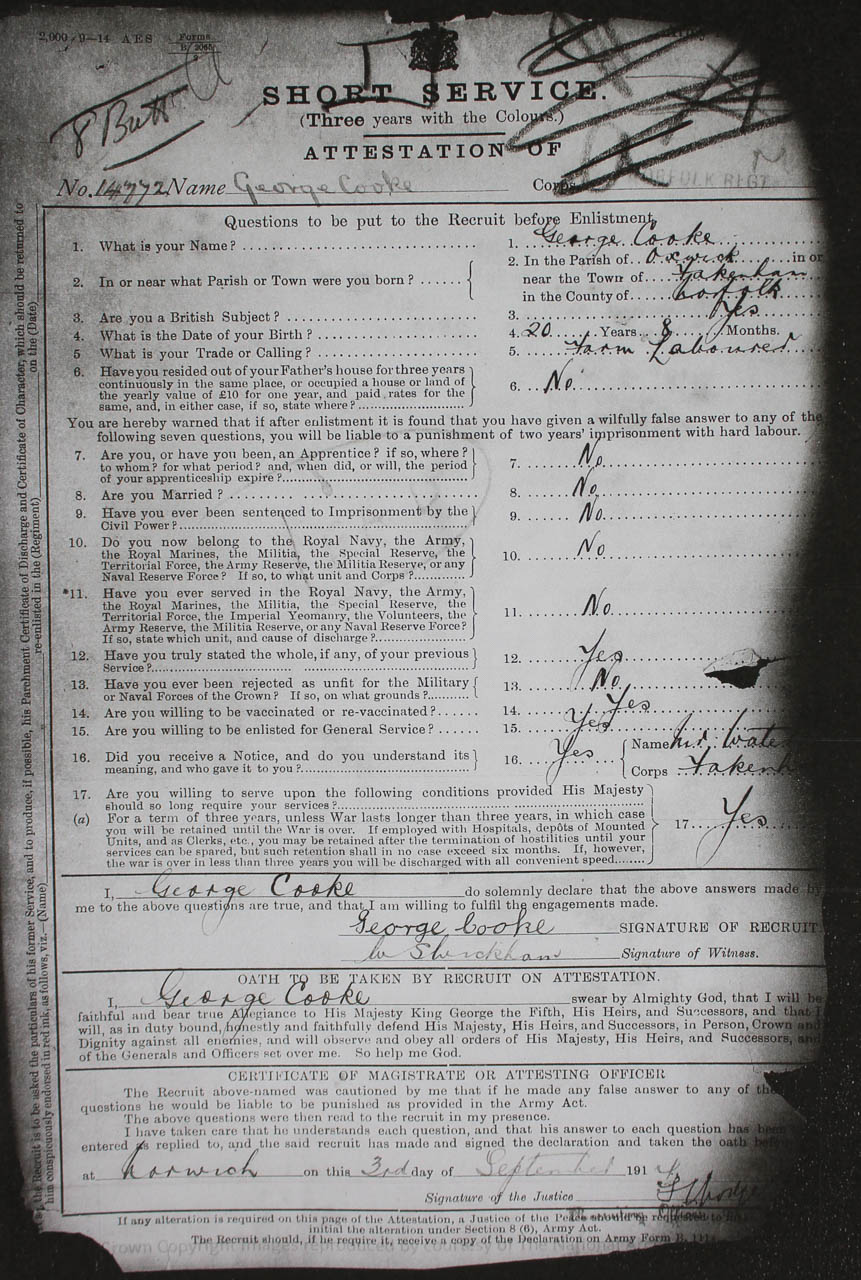 2,000 9—14 A E S Forms
B. 2065
8 Butt
SHORT SERVICE.
(Three years with the Colours.)
ATTESTATION OF
No. 14772 Name George Cooke Corps NORFOLK REGT
Questions to be put to the Recruit before Enlistment.
1. What is your Name? 1. George Cooke
2. In or near what Parish or Town were you born? 2. In the Parish of Oxwick in or
near the Town of Fakenham
in the County of Norfolk
3. Are you a British Subject? 3. Yes
4. What is the Date of your Birth? 4. 20 Years 8 Months.
5 What is your Trade or Calling? 5. Farm Labourer
6. Have you resided out of your Father's house for three years
continuously in the same place, or occupied a house or land of
the yearly value of £10 for one year, and paid rates for the
same, and, in either case, if so, state where? 6. No
You are hereby warned that if after enlistment it is found that you have given a wilfully false answer to any of the
following seven questions, you will be liable to a punishment of two years' imprisonment with hard labour.
7. Are you, or have you been, an Apprentice? if so, where?
to whom? for what period? and, when did, or will, the period
of your apprenticeship expire? 7. No
8. Are you Married? 8. No
9. Have you ever been sentenced to Imprisonment by the
Civil Power? 9. No
10. Do you now belong to the Royal Navy, the Army,
the Royal Marines, the Militia, the Special Reserve, the
Territorial Force, the Army Reserve, the Militia Reserve, or any
Naval Reserve Force? If so, to what unit and Corps? 10. No
*11. Have you ever served in the Royal Navy, the Army,
the Royal Marines, the Militia, the Special Reserve, the
Territorial Force, the Imperial Yeomanry, the Volunteers, the
Army Reserve, the Militia Reserve, or any Naval Reserve Force?
If so, state which unit, and cause of discharge? 11. No
12. Have you truly stated the whole, if any, of your previous
Service? 12. Yes
13. Have you ever been rejected as unfit for the Military
or Naval Forces of the Crown? If so, on what grounds? 13. No
14. Are you willing to be vaccinated or re-vaccinated? 14. Yes
15. Are you willing to be enlisted for General Service? 15. Yes
16. Did you receive a Notice, and do you understand its
meaning, and who gave it to you? 16. Yes Name
Corps
17. Are you willing to serve upon the following conditions provided His Majesty
should so long require your services?
(a) For a term of three years, unless War lasts longer than three years, in which case
you will be retained until the War is over. If employed with Hospitals, depôts of Mounted
Units, and as Clerks, etc., you may be retained after the termination of hostilities until your
services can be spared, but such retention shall in no case exceed six months. If, however,
the war is over in less than three years you will be discharged with all convenient speed 17. Yes
I, George Cooke do solemnly declare that the above answers made by
me to the above questions are true, and that I am willing to fulfil the engagements made.
George Cooke SIGNATURE OF RECRUIT.
Signature of Witness.
OATH TO BE TAKEN BY RECRUIT ON ATTESTATION.
I, George Cooke swear by Almighty God, that I will be
faithful and bear true Allegiance to His Majesty King George the Fifth, His Heirs, and Successors, and that I
will, as in duty bound, honestly and faithfully defend His Majesty, His Heirs, and Successors, in Person, Crown and
Dignity against all enemies, and will observe and obey all orders of His Majesty, His Heirs, and Successors, and
of the Generals and Officers set over me. So help me God.
CERTIFICATE OF MAGISTRATE OR ATTESTING OFFICER
The Recruit above-named was cautioned by me that if he made any false answer to any of the
questions he would be liable to be punished as provided in the Army Act.
The above questions were then read to the recruit in my presence.
I have taken care that he understands each question, and that his answer to each question has been
entered as replied to, and the said recruit has made and signed the declaration and taken the oath before
at Norwich on this 3rd day of September 1914
Signature of the Justice
If any alteration is required on this page of the Attestation, a Justice of the Peace should be requested to
initial the alteration under Section 8 (6), Army Act.
The Recruit should, if he require it, receive a copy of the Declaration on Army Form B. 111
Crown Copyright Images reproduced by courtesy of The National
the Recruit is to be asked the particulars of his former Service, and to produce, if possible, his Parchment Certificate of Discharge and Certificate of Character, which should be returned to
him conspicuously endorsed in red ink, as follows, viz.—(Name) re-enlisted in the (Regiment) on the (Date)